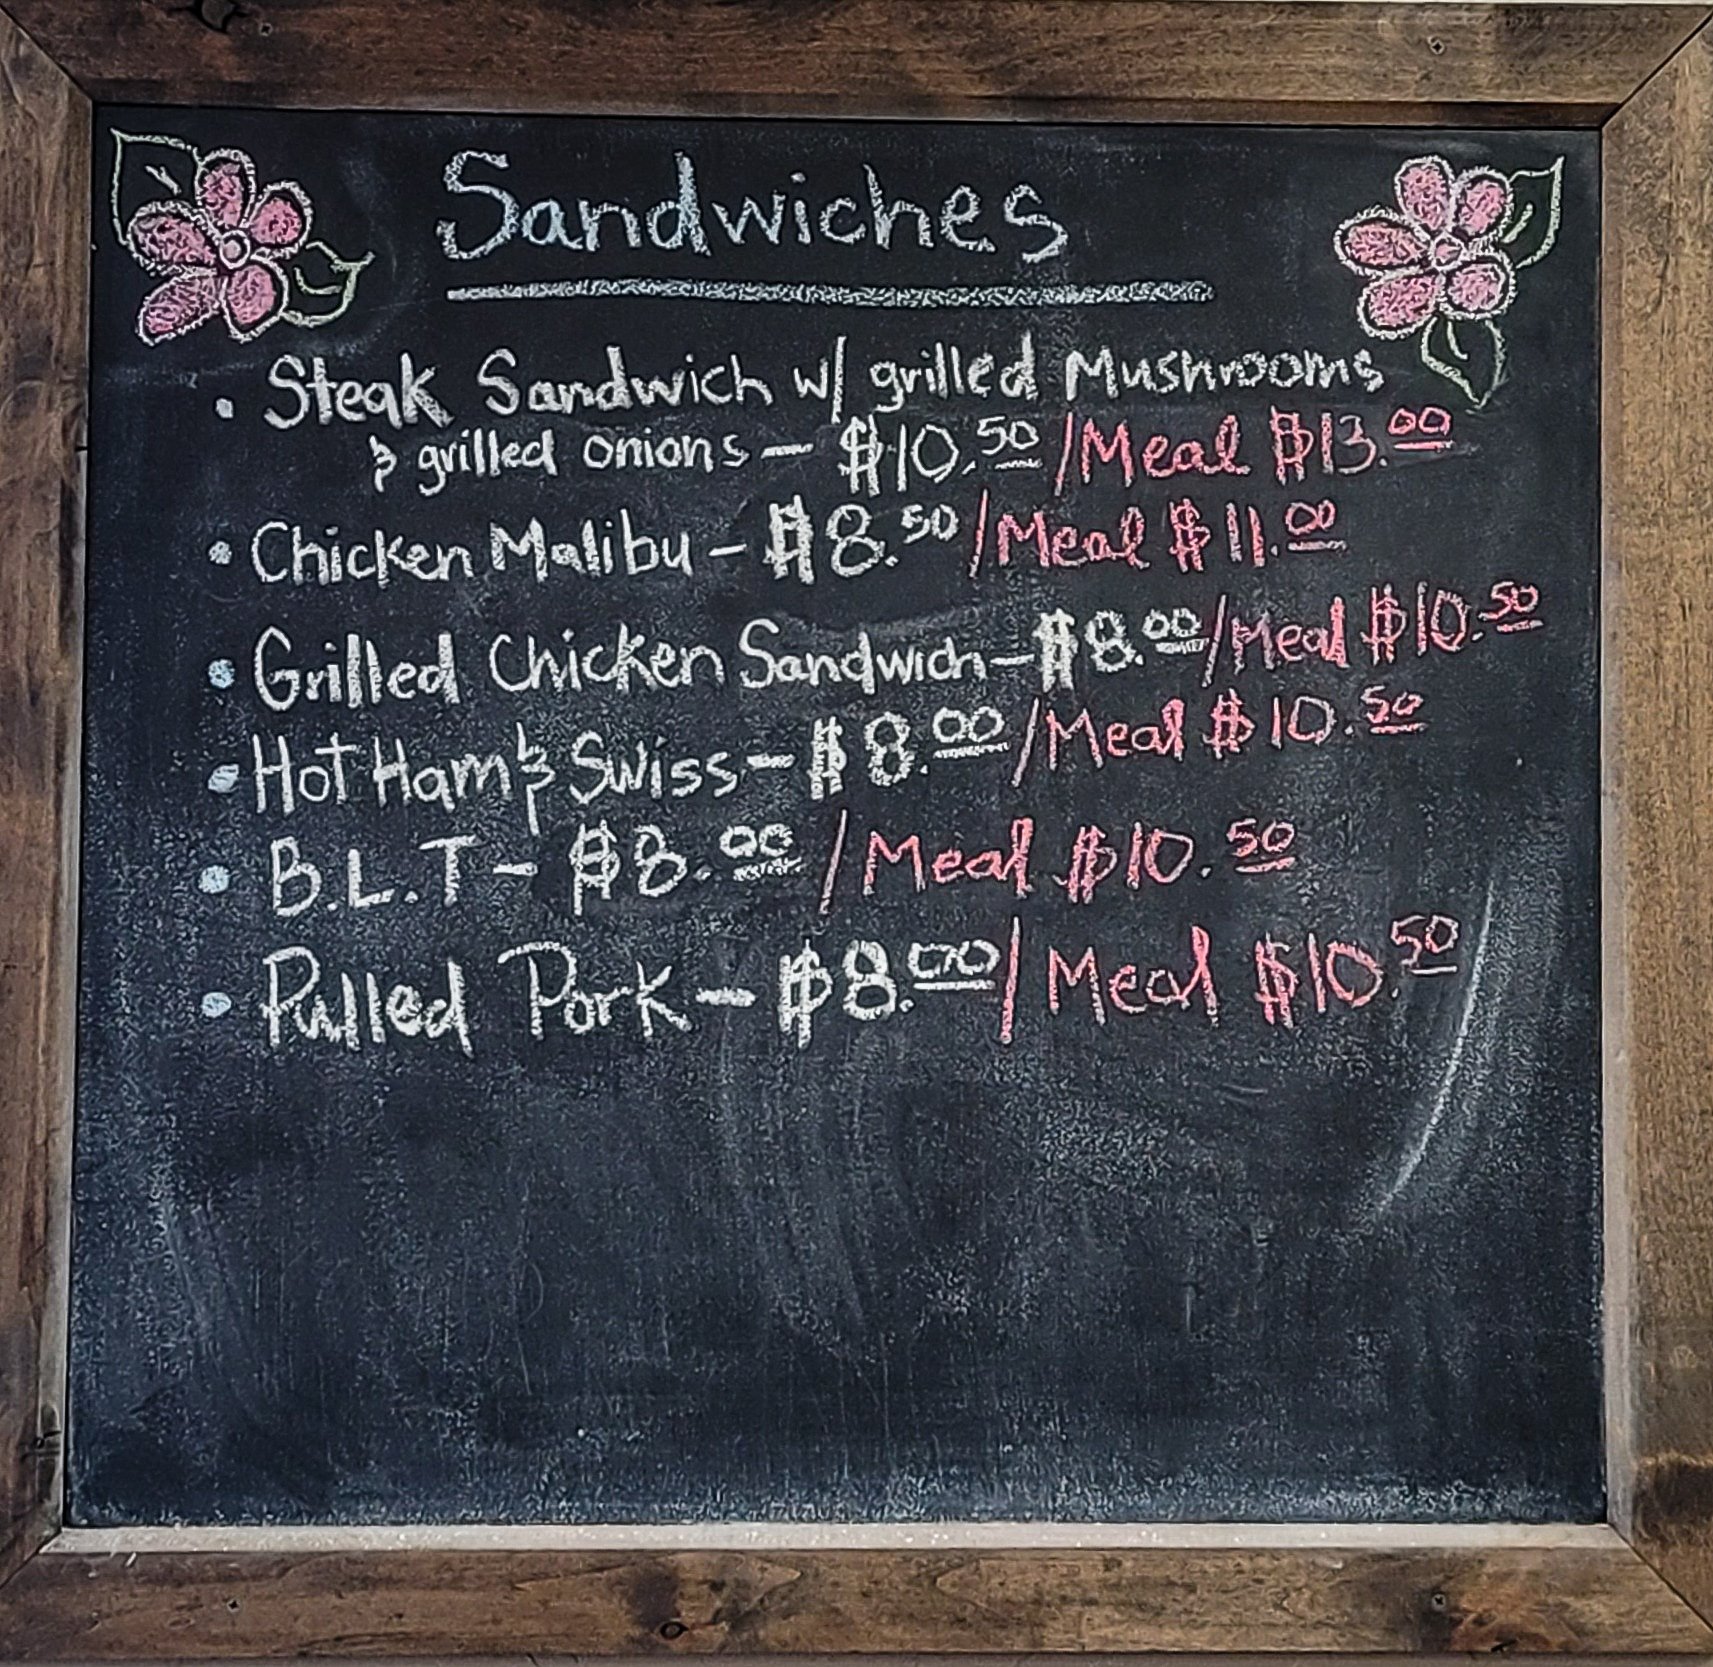 Sandwiches
• Steak Sandwich w/ grilled Mushrooms
& grilled onions - $10.50 / Meal $13.00
• Chicken Malibu - $8.50 / Meal $11.00
• Grilled Chicken Sandwich - $8.00 / Meal $10.50
• Hot Ham & Swiss - $8.00 / Meal $10.50
• B.L.T - $8.00 / Meal $10.50
• Pulled Pork - $8.00 / Meal $10.50